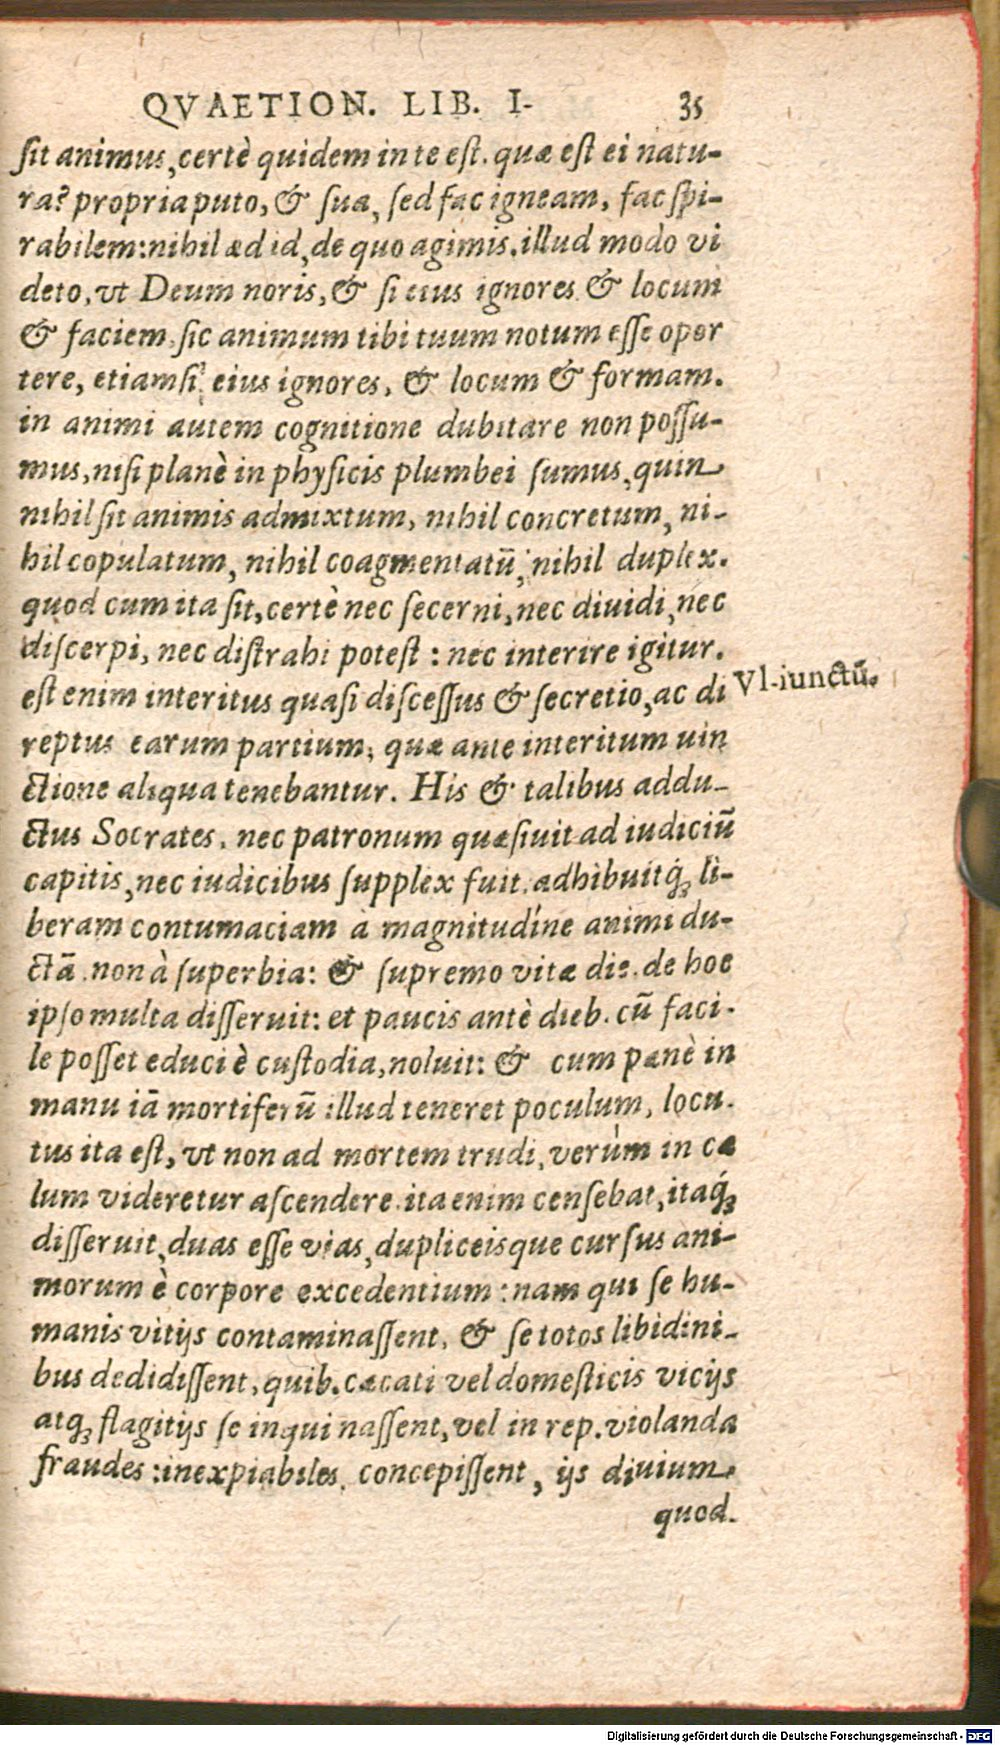 QVAETION. LIB. I- 35
sit animus, certè quidem in te est. quæ est ei natu-
ra? propria puto, & sua, sed fac igneam, fac spi-
rabilem: nihil æd id, de quo agimis. illud modo vi
deto, vt Deum noris, & si eius ignores & locum
& faciem, sic animum tibi tuum notum esse opor
tere, etiamsi eius ignores, & locum & formam.
in animi autem cognitione dubitare non possu-
mus, nisi planè in physicis plumbei sumus, quin
nihil sit animis admixtum, nihil concretum, ni-
hil copulatum, nihil coagmentatū, nihil duplex.
quod cum ita sit, certè nec secerni, nec diuidi, nec
discerpi, nec distrahi potest: nec interire igitur.
est enim interitus quasi discessus & secretio, ac di
reptus earum partium, quæ ante interitum uin
ctione aliqua tenebantur. His & talibus addu-
ctus Socrates, nec patronum quæsiuit ad iudiciū
capitis, nec iudicibus supplex fuit. adhibuitq́; li-
beram contumaciam a magnitudine animi du-
ctā non à superbia: & supremo vitæ die. de hoc
ipso multa disseruit: et paucis antè dieb. cū faci-
le posset educi è custodia, noluit: & cum pænè in
manu iā mortiferū illud teneret poculum, locu-
tus ita est, vt non ad mortem trudi, verùm in cæ
lum videretur ascendere. ita enim censebat, itaq́;
disseruit, duas esse vias, dupliceisque cursus ani-
morum è corpore excedentium: nam qui se hu-
manis vitijs contaminassent, & se totos libidini-
bus dedidissent, quib. cæcati vel domesticis vicijs
atq; flagitijs se inquinassent, vel in rep. violanda
fraudes: inexpiabiles concepissent, ijs diuium
quod.
Vl. iunctū.
Digitalisierung gefördert durch die Deutsche Forschungsgemeinschaft - DFG